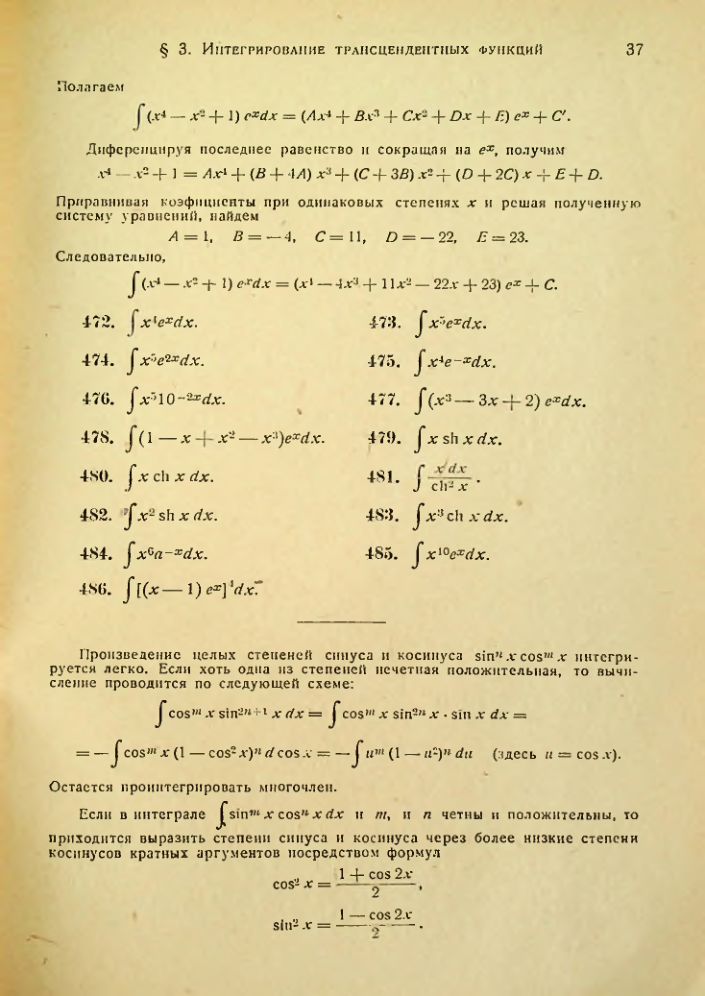 § 3. Интегрирование трансцендентных функций 37
Полагаем
∫ (x⁴ — x² + 1) eˣdx = (Ax⁴ + Bx³ + Cx² + Dx + E) eˣ + C′.
Диференцируя последнее равенство и сокращая на eˣ, получим
x⁴ — x² + 1 = Ax⁴ + (B + 4A) x³ + (C + 3B) x² + (D + 2C) x + E + D.
Приравнивая коэфициенты при одинаковых степенях x и решая полученную
систему уравнений, найдем
A = 1, B = — 4, C = 11, D = — 22, E = 23.
Следовательно,
∫ (x⁴ — x² + 1) eˣdx = (x⁴ — 4x³ + 11x² — 22x + 23) eˣ + C.
472. ∫ x⁴eˣdx. 473. ∫ x⁵eˣdx.
474. ∫ x⁵e²ˣdx. 475. ∫ x⁴e⁻ˣdx.
476. ∫ x⁵10⁻²ˣdx. 477. ∫ (x³ — 3x + 2) eˣdx.
478. ∫ (1 — x + x² — x³)eˣdx. 479. ∫ x sh x dx.
480. ∫ x ch x dx. 481. ∫ x dx / ch² x .
482. ∫ x² sh x dx. 483. ∫ x³ ch x dx.
484. ∫ x⁶a⁻ˣdx. 485. ∫ x¹⁰eˣdx.
486. ∫ [(x — 1) eˣ]⁴dx.
Произведение целых степеней синуса и косинуса sinⁿ x cosᵐ x интегри-
руется легко. Если хоть одна из степеней нечетная положительная, то вычи-
сление проводится по следующей схеме:
∫ cosᵐ x sin²ⁿ⁺¹ x dx = ∫ cosᵐ x sin²ⁿ x · sin x dx =
= — ∫ cosᵐ x (1 — cos² x)ⁿ d cos x = — ∫ uᵐ (1 — u²)ⁿ du (здесь u = cos x).
Остается проинтегрировать многочлен.
Если в интеграле ∫ sinᵐ x cosⁿ x dx и m, и n четны и положительны, то
приходится выразить степени синуса и косинуса через более низкие степени
косинусов кратных аргументов посредством формул
cos² x = (1 + cos 2x) / 2 ,
sin² x = (1 — cos 2x) / 2 .